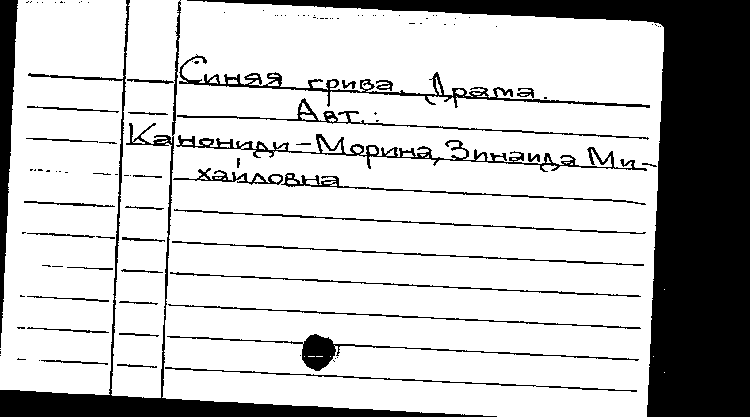 Синяя грива. Драма.
Авт.:
Канониди-Морина, Зинаида Ми-
хайловна